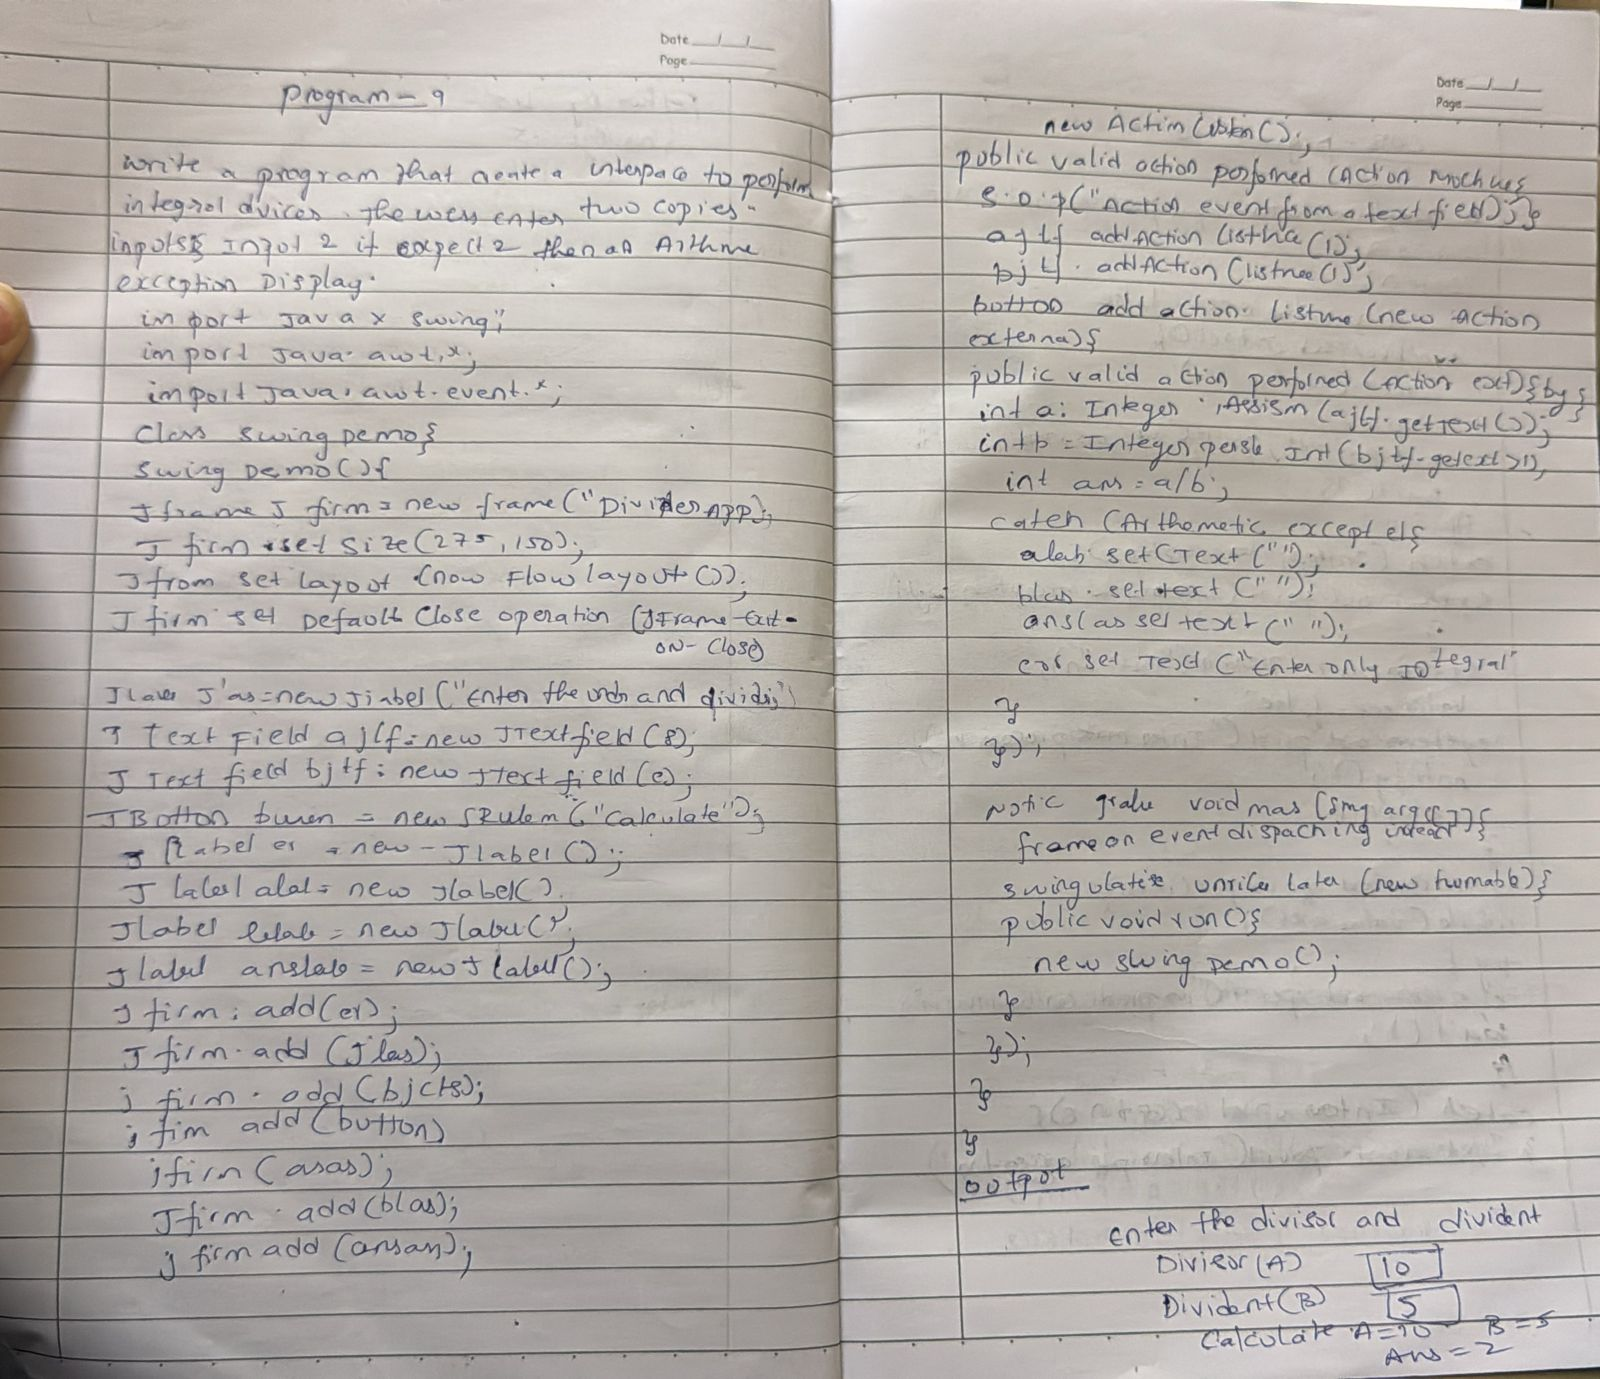 Date
Page
Program - 9
write a program that create a interpace to perform
integral dvices. The wess enter two copies.
inputs Input 2 if expect 2 then an Arthme
exception Display.
import Java x swing;
import Java. awt.x;
import Java. awt. event.x;
Class swing Demo{
swing Demo(){
Jframe J firm = new frame("Divider APP);
J firm .set Size(275,150);
J from set layout (now Flow layout ());
J firm set Default Close operation (JFrame-Exit-
ON-Close)
J'as=new Jiabel ("Enter the and
J Text Field ajlf = new JTextfield (8);
J Text field bjtf : new Jtext field (e);
JBotton = new ("Calculate");
J label er = new - Jlabel ();
J alal = new Jlabel().
Jlabel = new Jlabu();
J label anslab = new J label();
J firm : add(er);
J firm. add (Jlas);
j firm . add (bjcts);
j fim add (button)
jfirm (asas);
J firm . add (blas);
j firm add (ansan);
Date
Page
new Action
public valid action perfomed (Action
S.o.p("Action event from a text field);}
ajtf add Action (1);
bjtf. add Action (listnee (1);
botton add action. Listune (new action
externa){
public valid action perfomed (Action ext){by {
int a: Integer (ajtf. getText());
int b = Integer persle Int (bjtf-getext>1),
int ans = a/b;
catch (Arthometic except e){
alab. set (Text ("");
blas . set text ("");
ans(as set text (" ");
set Text ("Enter only Integral"
}
});
void mas [smg args[]]{
frame on event dispaching
later (new
public void run(){
new swing Demo();
}
});
}
}
output
Enter the divisor and divident
Divisor (A) 10
Divident (B) 5
Calculate A=10 B=5
Ans = 2